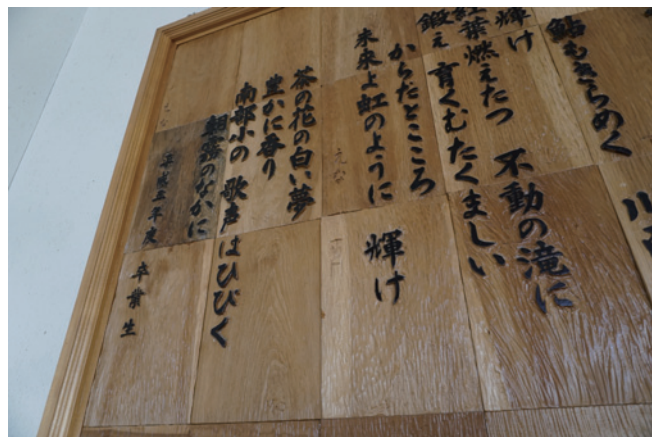 鮎もきらめく
川
輝け
不動の滝に
紅葉燃えたつ
鍛え 育くむたくましい
からだとこころ
未来よ虹のように 輝け
茶の花の白い夢
豊かに香り
南部小の 歌声はひびく
朝霧のなかに
平成五年度 卒業生